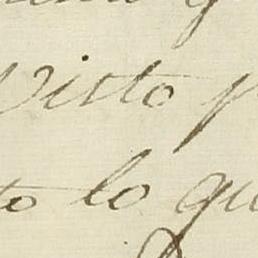 Visto p
to lo qu